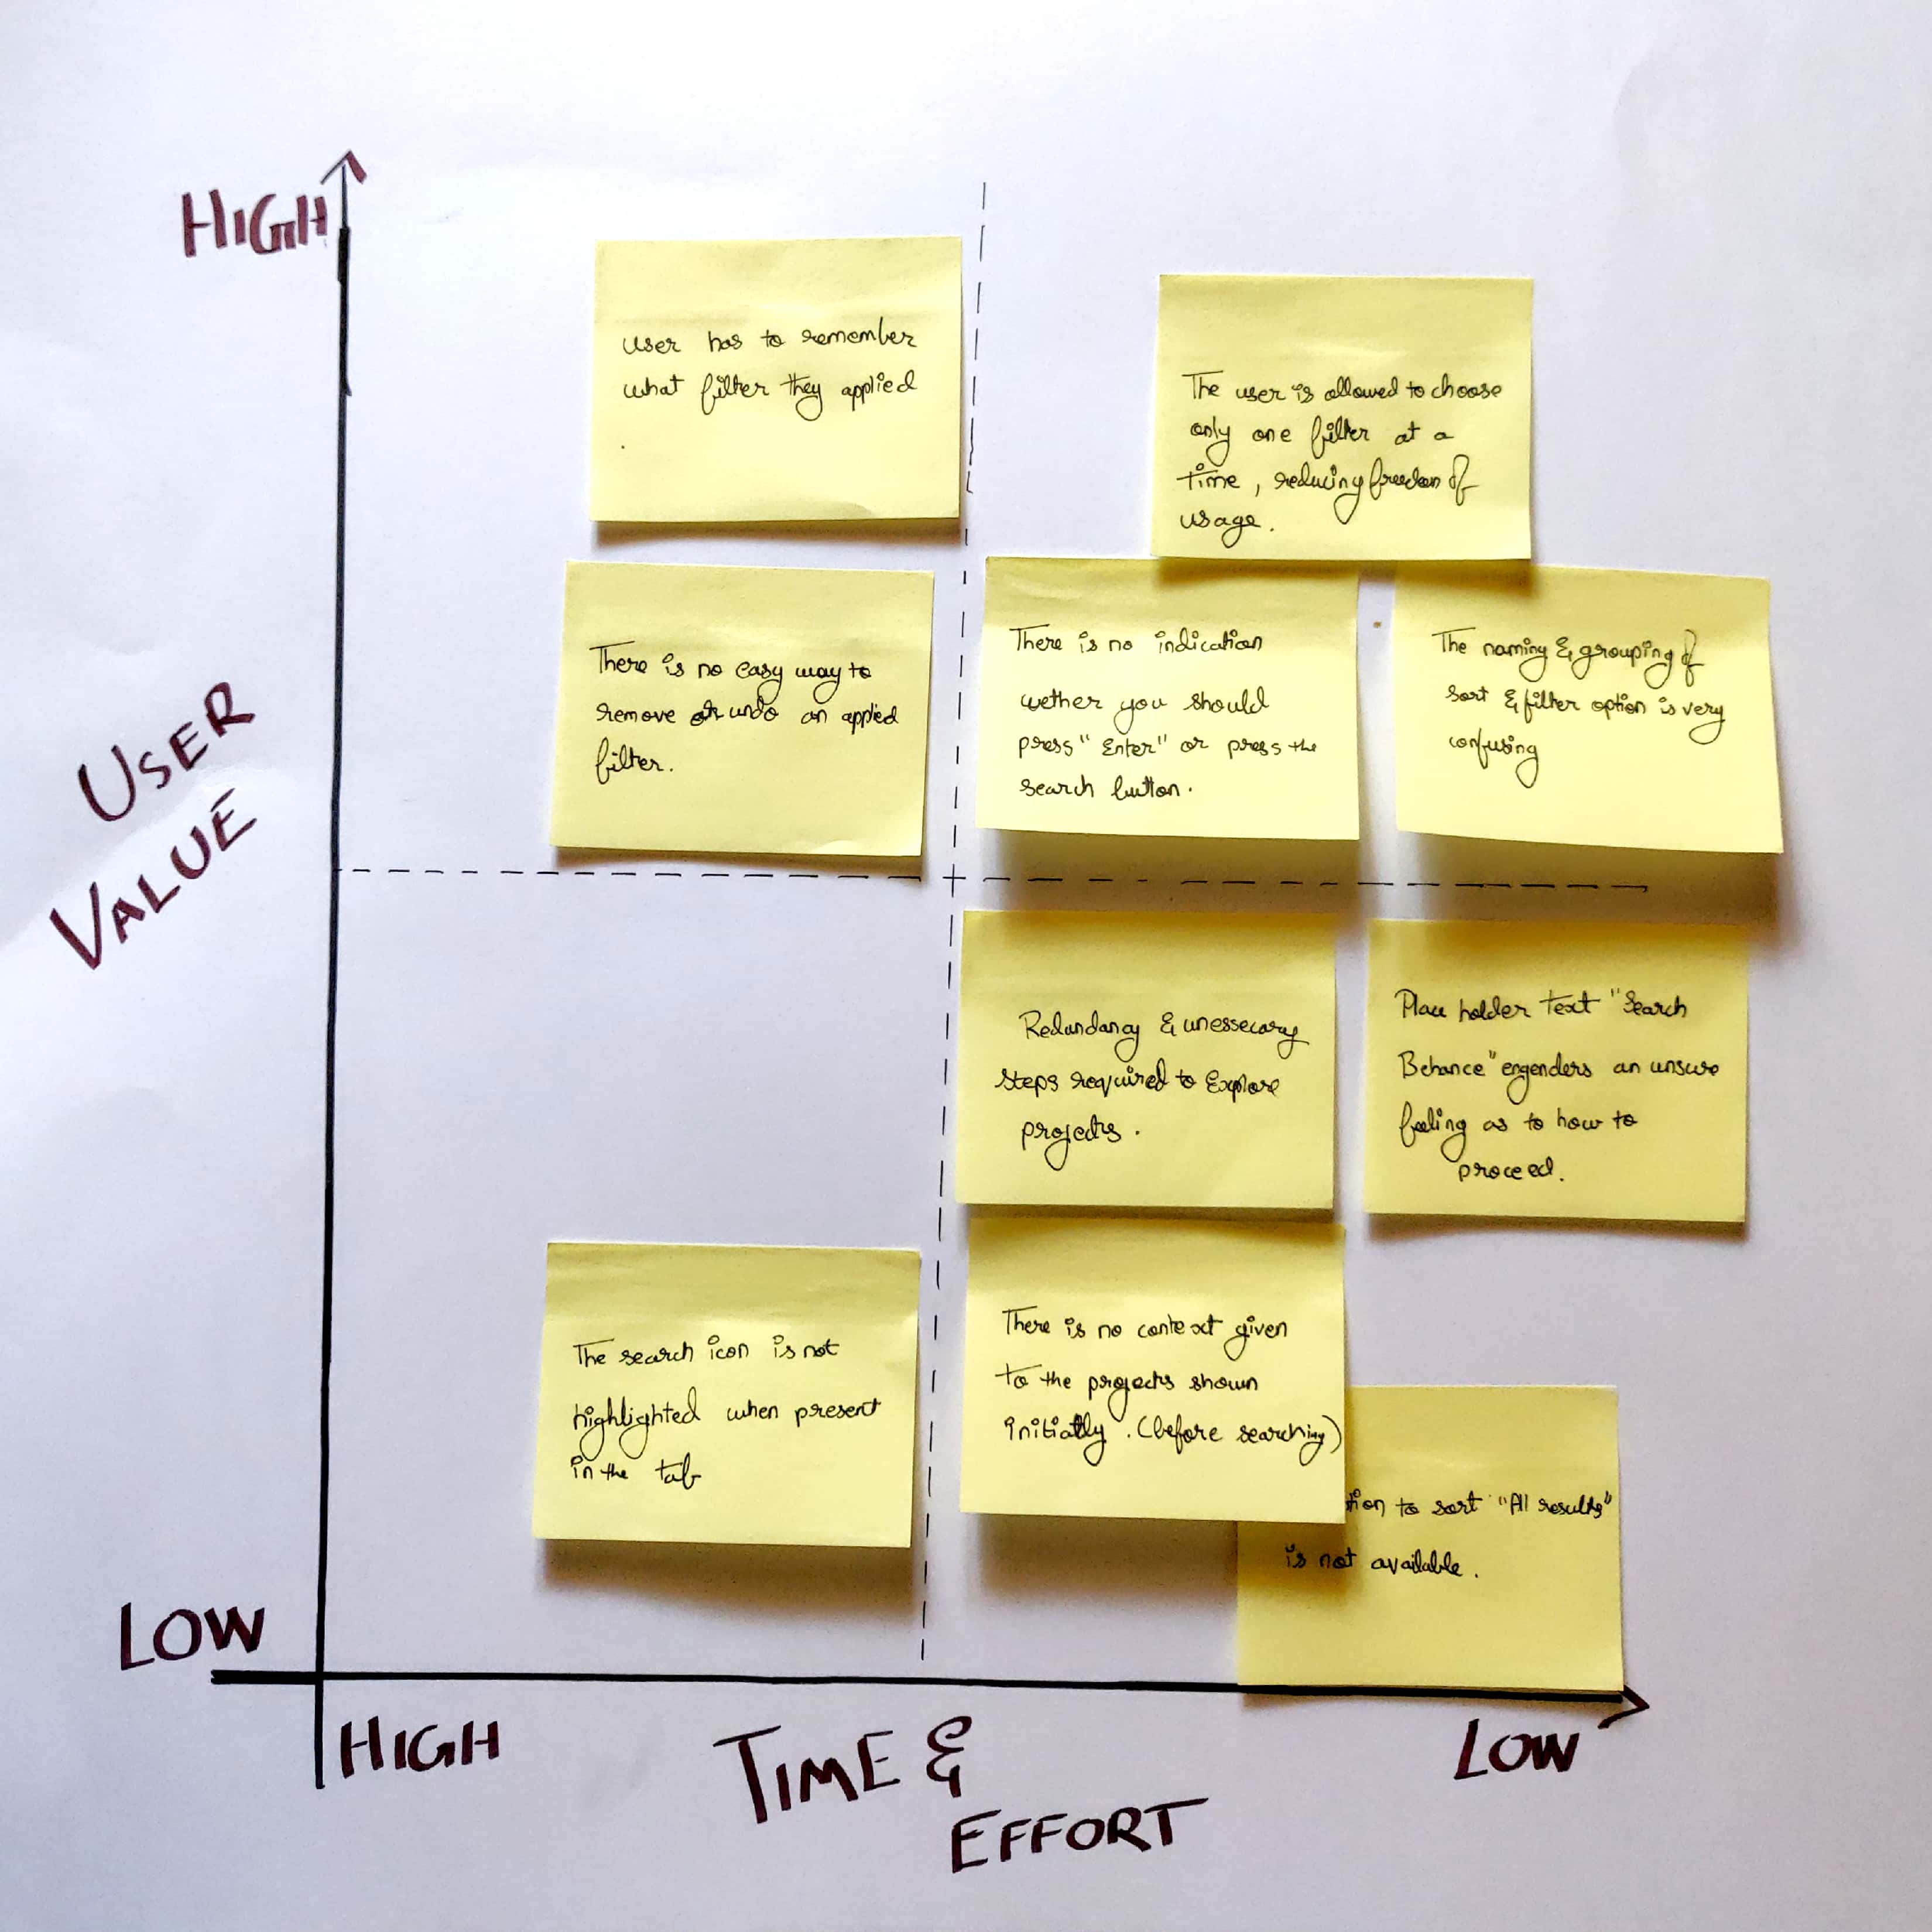 HIGH
USER
VALUE
LOW
HIGH
TIME &
EFFORT
LOW
user has to remember
what filter they applied
.
The user is allowed to choose
only one filter at a
time, reducing freedom of
usage.
There is no easy way to
remove or undo an applied
filter.
There is no indication
wether you should
press "Enter" or press the
search button.
The naming & grouping of
sort & filter option is very
confusing
Redundancy & unessecary
steps required to Explore
projects.
Place holder Text "Search
Behance" engenders an unsure
feeling as to how to
proceed.
The search icon is not
highlighted when present
in the tab
There is no context given
to the projects shown
initially. (before searching)
tion to sort "All results"
is not available.